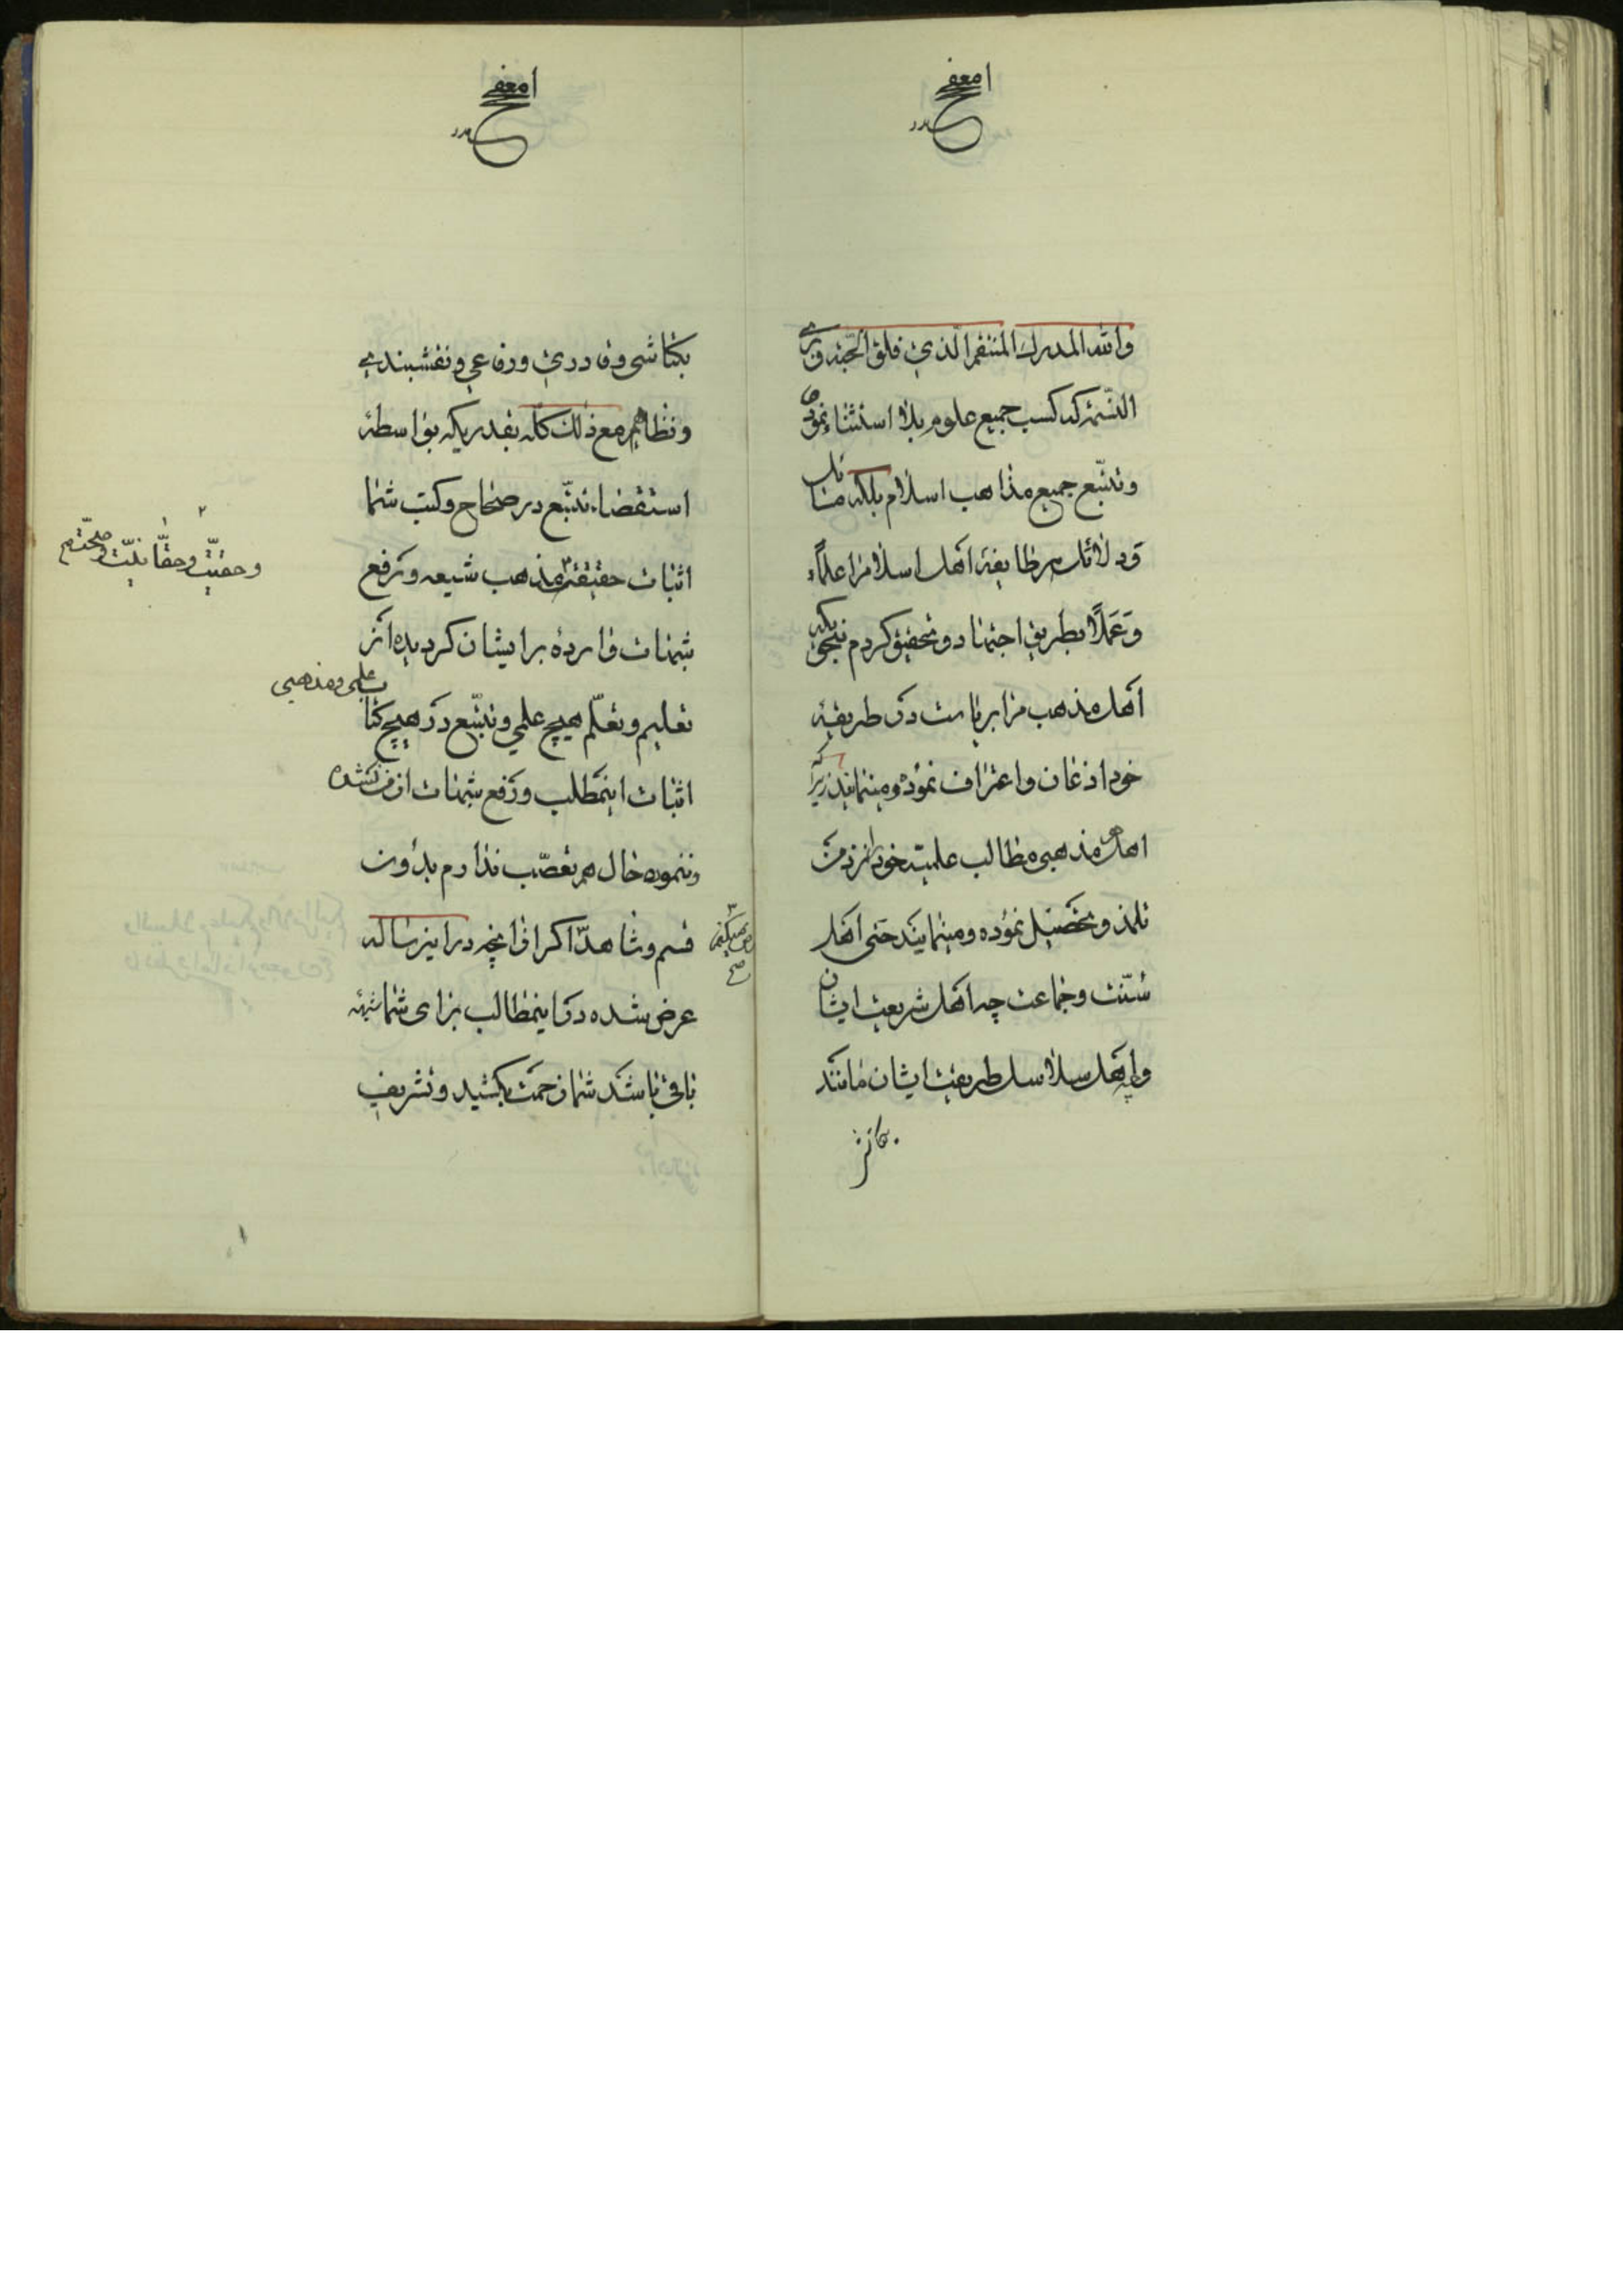 والله المدرك المنتقم الذی فلق الحبة وبرئ
النسمة که کسب جمیع علوم بلا استثناء نموده
وتتبّع جمیع مذاهب اسلام بلکه مسائل
ودلائل هر طایفه اهل اسلام را علماً
وَعَمَلاً بطریق اجتهاد و تحقیق کردم بنحویکه
اهل مذهب مرا بریاست در طریقه
خود اذعان واعتراف نموده ومینمایند زیرا که
اهل هر مذهبی مطالب علمیّه خود را نزد من
تلمذ و تحصیل نموده ومینمایند حتی اهل
سُنّت وجماعت چه اهل شریعت ایشان
وچه اهل سلاسل طریقت ایشان مانند
بکتاشی
بکتاشی وقادری ورفاعی ونقشبندی
ونظائرهم مع ذلک کله بقدریکه بواسطهٔ
استقصاء تتبّع در صحاح وکتب شما
اثبات حقیقة مذهب شیعه ورفع
وحقیّت وحقّانیّت وصحّت
شبهات وارده بر ایشان کرد بدها از
تعلیم وتعلّم هیچ علمی وتتبّع در هیچ کتاب
علمی ومذهبی
اثبات اینمطلب ورفع شبهات از من نشده
وننموده حال هم تعصّب ندارم بدون
قسم وشاهد اگر از آنچه در این رساله
عرض شده در اینمطالب برای شما شبهه
باقی باشد شما زحمت بکشید وتشریف